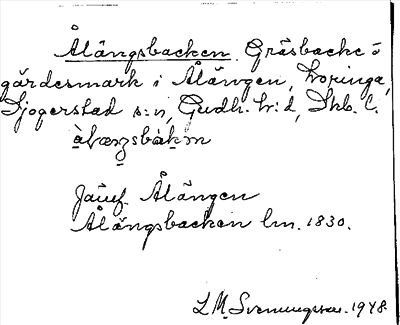 Ålängsbacken. Gräsbacke å
gärdesmark i Ålängen, Toringa,
Sjogerstad s:n, Gudh. h:d, Skb. l.
Jämf. Ålängen
Ålängsbacken lm. 1830.
L M Svenungsson. 1948.